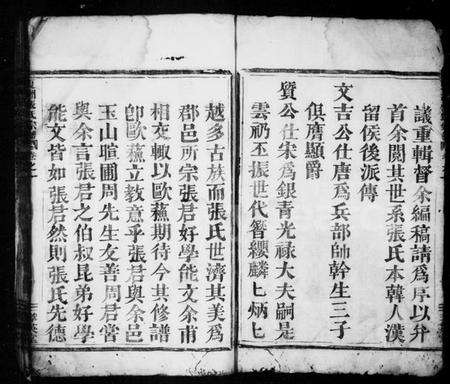 議重輯督余編稿請爲序以弁
首余閱其世系張氏本韓人漢
留侯後派傳
文吉公仕唐爲兵部帥幹生三子
俱膺顯爵
賢公仕宋爲銀青光禄大夫嗣是
雲礽丕振世代簪纓麟匕炳匕
越多古族而張氏世濟其美爲
郡邑所宗張君好學能文余甫
相交輙以歐蘇期待今其修譜
卽歐蘓立教意乎張君與余邑
玉山暄圃周先生友善周君嘗
與余言張君之伯叔昆弟好學
能文皆如張君然則張氏先德